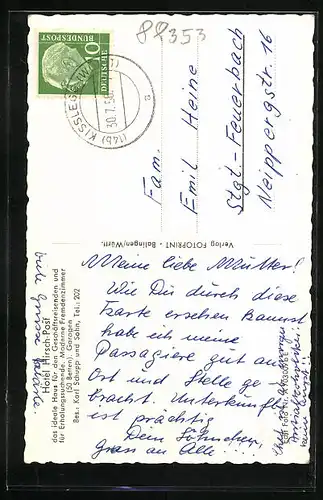 82353
DEUTSCHE
BUNDESPOST
10
(14b) KISSLEGG
30.7.56
a
Fam.
Emil Heine
Stgt-Feuerbach
Neippergstr. 16
Verlag FOTOPRINT - Balingen/Württ.
Hotel Hirsch-Post
das ideale Haus für den Geschäftsreisenden und
für Erholungssuchende. Moderne Fremdenzimmer
(50 Betten). Garagen
Bes.: Karl Schupp und Sohn, Tel.: 202
Meine liebe Mutter!
Wie Du durch diese
Karte ersehen kannst
habe ich meine
Passagiere gut an
Ort und Stelle ge
bracht. Unterkunft
ist prächtig
Dein Söhnchen,
Gruss an Alle!....
viele Grüsse